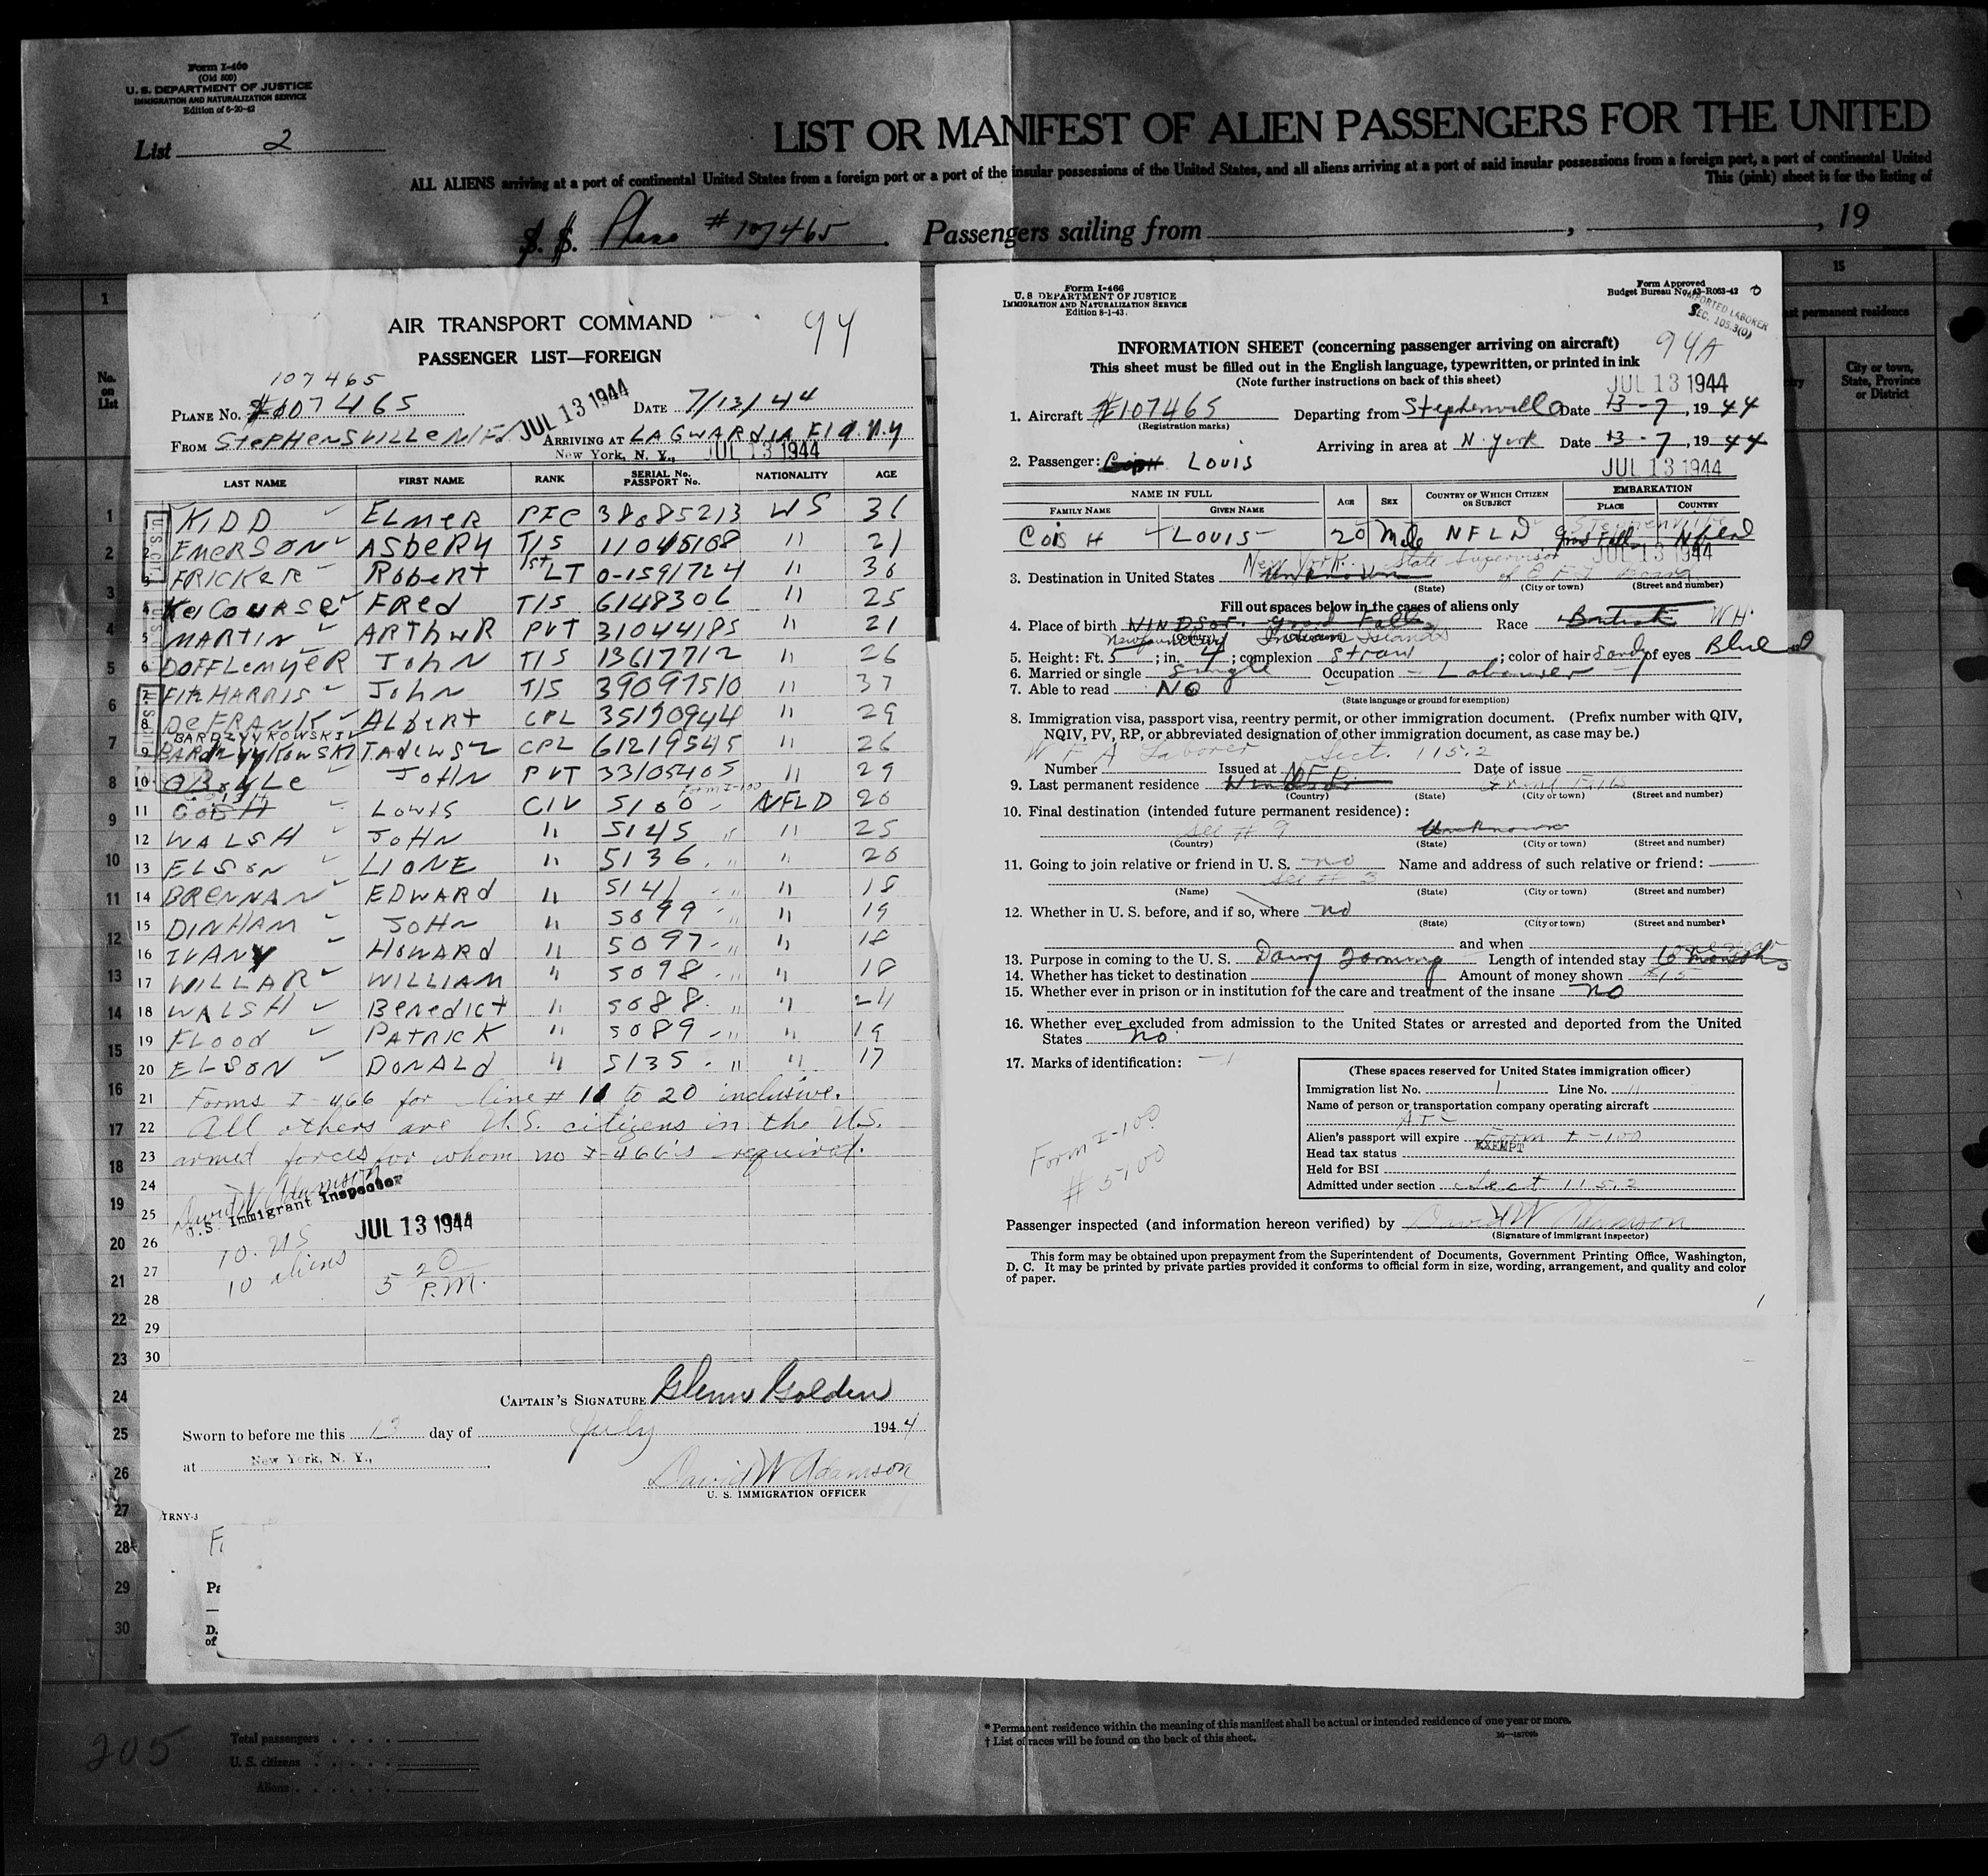 Form I-400
(Old 500)
U. S. DEPARTMENT OF JUSTICE
IMMIGRATION AND NATURALIZATION SERVICE
Edition of 6-20-42
List 2
LIST OR MANIFEST OF ALIEN PASSENGERS FOR THE UNITED
ALL ALIENS arriving at a port of continental United States from a foreign port or a port of the insular possessions of the United States, and all aliens arriving at a port of said insular possessions from a foreign port, a port of continental United
This (pink) sheet is for the listing of
S. S. Plane #107465. Passengers sailing from , , 19
AIR TRANSPORT COMMAND
94
PASSENGER LIST—FOREIGN
107465
PLANE No. #107465 JUL 13 1944 DATE 7/13/44
FROM STEPHENSVILLE NFd ARRIVING AT LAGWARDIA Fld. N.Y
New York, N. Y., JUL 13 1944
LAST NAME FIRST NAME RANK SERIAL No. PASSPORT No. NATIONALITY AGE
KIDD ELMER PFC 38085213 US 31
2 EMERSON ASBERY T/5 11045108 " 21
3 FRICKER ROBERT 1st LT 0-1591724 " 36
4 FRED T/5 6148306 " 25
5 MARTIN ARTHUR PVT 31044185 " 21
6 DOFFLEMYER JOHN T/5 13617712 " 26
7 FITZHARRIS JOHN T/5 39097510 " 37
8 DeFRANK ALBERT CPL 35190944 " 29
BARDZYYKOWSKI
9 BARDZYYKOWSKI TADEWSZ CPL 61219545 " 26
10 OBOYLE JOHN PVT 33105405 " 29
11 LOUIS CIV 5100 Form I-100 NFLD 20
12 WALSH JOHN " 5145 " " 25
13 ELSON LIONE " 5136 " " 20
14 BRENNAN EDWARD " 5141 " " 18
15 DINHAM JOHN " 5099 " " 19
16 IVANY HOWARD " 5097 " " 18
17 WILLAR WILLIAM " 5098 " " 18
18 WALSH BENEDICT " 5088 " " 24
19 FLOOD PATRICK " 5089 " " 19
20 ELSON DONALD " 5135 " " 17
21 Forms I-466 for line # 11 to 20 inclusive.
22 All others are U.S. citizens in the U.S.
23 armed forces for whom no I-466's required.
24 David W Adamson
25 U.S. Immigrant Inspector
26 10 US JUL 13 1944
27 10 aliens 5 20 P.M.
28
29
30
CAPTAIN'S SIGNATURE Glenn Golden
Sworn to before me this 13 day of July 1944
at New York, N. Y.,
David W Adamson
U. S. IMMIGRATION OFFICER
TRNY-3
Form I-466
U. S DEPARTMENT OF JUSTICE
IMMIGRATION AND NATURALIZATION SERVICE
Edition 8-1-43.
Form Approved
Budget Bureau No. 43-R063-42
IMPORTED LABORER
SEC. 105.3(0)
94A
INFORMATION SHEET (concerning passenger arriving on aircraft)
This sheet must be filled out in the English language, typewritten, or printed in ink
(Note further instructions on back of this sheet)
JUL 13 1944
1. Aircraft #107465 Departing from Stephenville Date 13-7, 1944
(Registration marks)
Arriving in area at N. York Date 13-7, 1944
JUL 13 1944
2. Passenger: LOUIS
NAME IN FULL AGE SEX COUNTRY OF WHICH CITIZEN OR SUBJECT EMBARKATION
FAMILY NAME GIVEN NAME PLACE COUNTRY
COISH LOUIS 20 Male NFLD Stephenville Grand Falls Nfld
JUL 13 1944
New York State Supervisor
3. Destination in United States Unknown
(State) (City or town) (Street and number)
Fill out spaces below in the cases of aliens only
4. Place of birth WINDSOR. Grand Falls Race British WH
Newfoundland Islands
5. Height: Ft. 5; in. 4; complexion Straw; color of hair Sandy of eyes Blue
6. Married or single Single Occupation - Labourer
7. Able to read NO
(State language or ground for exemption)
8. Immigration visa, passport visa, reentry permit, or other immigration document. (Prefix number with QIV,
NQIV, PV, RP, or abbreviated designation of other immigration document, as case may be.)
W F A Laborer Sect. 115.2
Number Issued at Date of issue
9. Last permanent residence Grand Falls
(Country) (State) (City or town) (Street and number)
10. Final destination (intended future permanent residence):
See # 9 Unknown
(Country) (State) (City or town) (Street and number)
11. Going to join relative or friend in U. S. no Name and address of such relative or friend:
See # 3
(Name) (State) (City or town) (Street and number)
12. Whether in U. S. before, and if so, where no
(State) (City or town) (Street and number)
and when
13. Purpose in coming to the U. S. Dairy Farming Length of intended stay 6 months
14. Whether has ticket to destination Amount of money shown $15
15. Whether ever in prison or in institution for the care and treatment of the insane no
16. Whether ever excluded from admission to the United States or arrested and deported from the United
States no
17. Marks of identification:
Form I-100
# 5100
(These spaces reserved for United States immigration officer)
Immigration list No. 1 Line No. 11
Name of person or transportation company operating aircraft
ATC
Alien's passport will expire Form I-100
Head tax status EXEMPT
Held for BSI
Admitted under section Sect 115.2
Passenger inspected (and information hereon verified) by David W Adamson
(Signature of immigrant inspector)
This form may be obtained upon prepayment from the Superintendent of Documents, Government Printing Office, Washington,
D. C. It may be printed by private parties provided it conforms to official form in size, wording, arrangement, and quality and color
of paper.
1
No. on List
1
2
3
4
5
6
7
8
9
10
11
12
13
14
15
16
17
18
19
20
21
22
23
24
25
26
27
28
29
30
15
permanent residence
City or town, State, Province or District
205
Total passengers
U. S. citizens
Aliens
* Permanent residence within the meaning of this manifest shall be actual or intended residence of one year or more.
† List of races will be found on the back of this sheet.